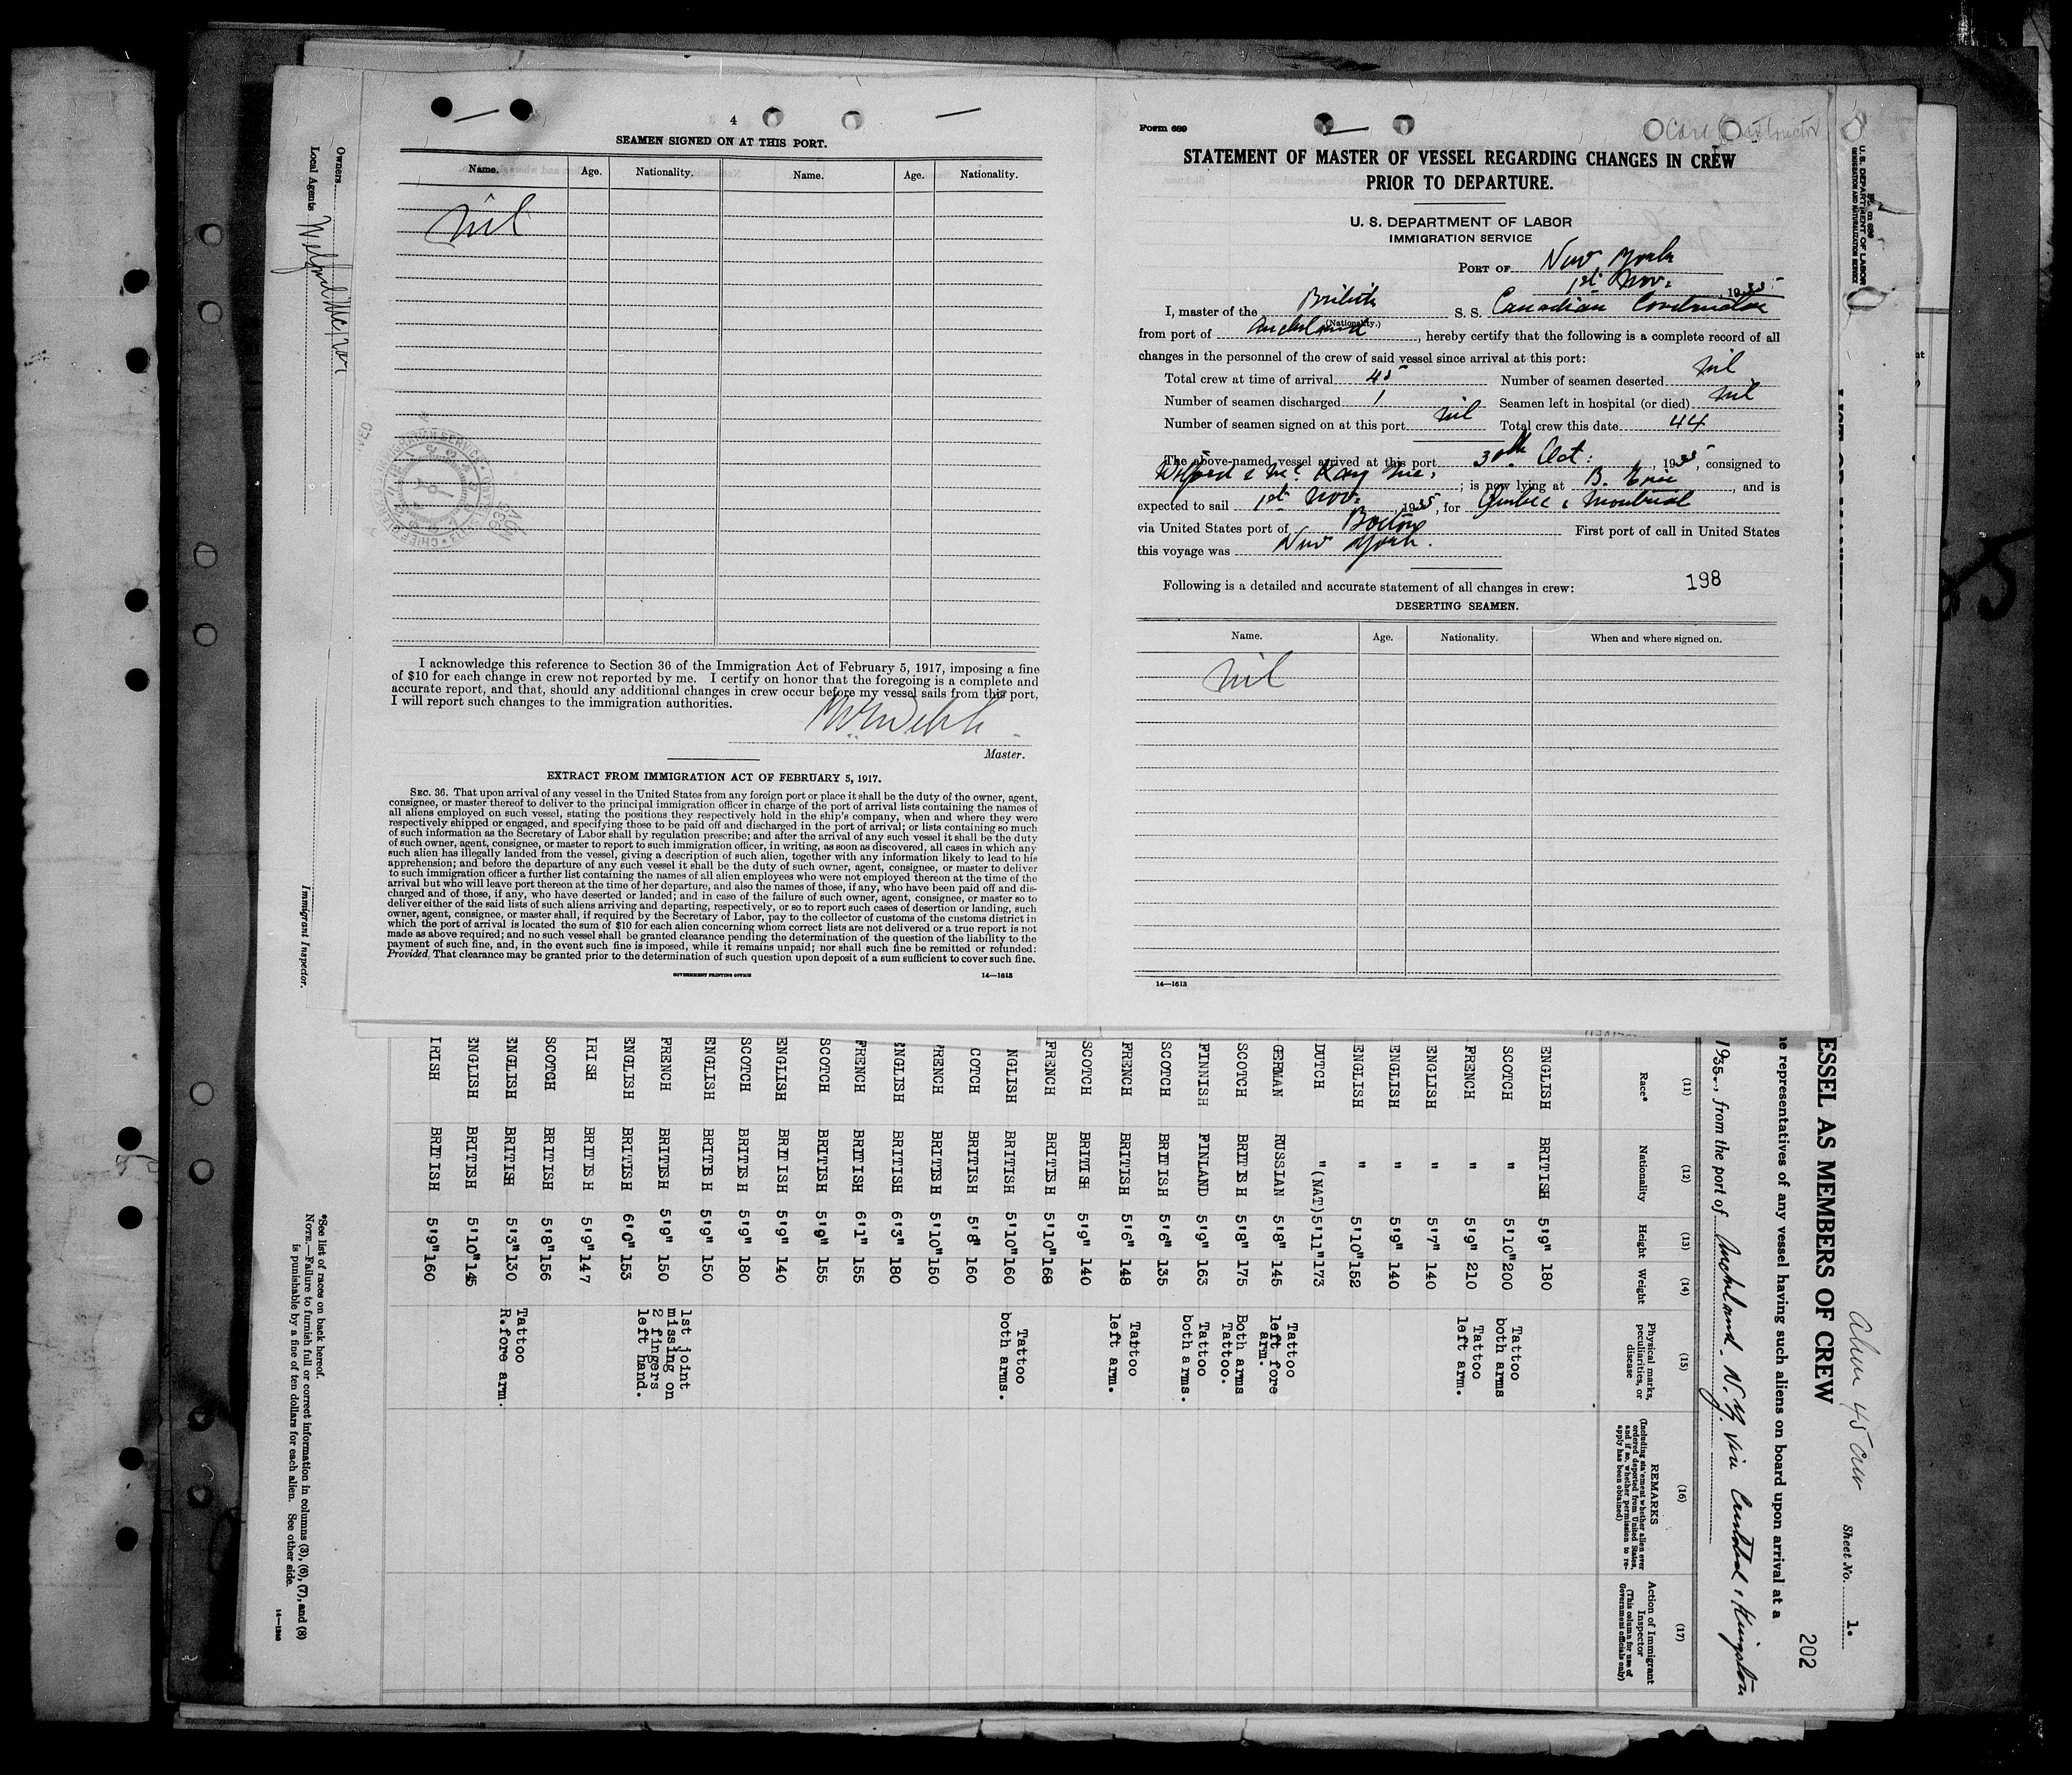 4
SEAMEN SIGNED ON AT THIS PORT.
Name. Age. Nationality. Name. Age. Nationality.
nil
I acknowledge this reference to Section 36 of the Immigration Act of February 5, 1917, imposing a fine
of $10 for each change in crew not reported by me. I certify on honor that the foregoing is a complete and
accurate report, and that, should any additional changes in crew occur before my vessel sails from this port,
I will report such changes to the immigration authorities.
Master.
EXTRACT FROM IMMIGRATION ACT OF FEBRUARY 5, 1917.
SEC. 36. That upon arrival of any vessel in the United States from any foreign port or place it shall be the duty of the owner, agent,
consignee, or master thereof to deliver to the principal immigration officer in charge of the port of arrival lists containing the names of
all aliens employed on such vessel, stating the positions they respectively hold in the ship's company, when and where they were
respectively shipped or engaged, and specifying those to be paid off and discharged in the port of arrival; or lists containing so much
of such information as the Secretary of Labor shall by regulation prescribe; and after the arrival of any such vessel it shall be the duty
of such owner, agent, consignee, or master to report to such immigration officer, in writing, as soon as discovered, all cases in which any
such alien has illegally landed from the vessel, giving a description of such alien, together with any information likely to lead to his
apprehension; and before the departure of any such vessel it shall be the duty of such owner, agent, consignee, or master to deliver
to such immigration officer a further list containing the names of all alien employees who were not employed thereon at the time of the
arrival but who will leave port thereon at the time of her departure, and also the names of those, if any, who have been paid off and dis-
charged and of those, if any, who have deserted or landed; and in case of the failure of such owner, agent, consignee, or master so to
deliver either of the said lists of such aliens arriving and departing, respectively, or so to report such cases of desertion or landing, such
owner, agent, consignee, or master shall, if required by the Secretary of Labor, pay to the collector of customs of the customs district in
which the port of arrival is located the sum of $10 for each alien concerning whom correct lists are not delivered or a true report is not
made as above required; and no such vessel shall be granted clearance pending the determination of the question of the liability to the
payment of such fine, and, in the event such fine is imposed, while it remains unpaid; nor shall such fine be remitted or refunded:
Provided, That clearance may be granted prior to the determination of such question upon deposit of a sum sufficient to cover such fine.
GOVERNMENT PRINTING OFFICE 14—1613
Form 689
STATEMENT OF MASTER OF VESSEL REGARDING CHANGES IN CREW
PRIOR TO DEPARTURE.
U. S. DEPARTMENT OF LABOR
IMMIGRATION SERVICE
PORT OF New York
1st Nov. , 1935
I, master of the British S. S. Canadian Constructor
(Nationality.)
from port of Auckland , hereby certify that the following is a complete record of all
changes in the personnel of the crew of said vessel since arrival at this port:
Total crew at time of arrival 45 Number of seamen deserted nil
Number of seamen discharged 1 Seamen left in hospital (or died) nil
Number of seamen signed on at this port nil Total crew this date 44
The above-named vessel arrived at this port 30th Oct. , 1935, consigned to
; is now lying at B. Erie , and is
expected to sail 1st Nov. , 1935, for Quebec & Montreal
via United States port of Boston First port of call in United States
this voyage was New York.
Following is a detailed and accurate statement of all changes in crew: 198
DESERTING SEAMEN.
Name. Age. Nationality. When and where signed on.
nil
14—1613
Owners
Local Agents
Immigrant Inspector.
ESSEL AS MEMBERS OF CREW
45 crew
Sheet No. 1.
202
e representatives of any vessel having such aliens on board upon arrival at a
1935, from the port of Auckland. N.Z. via Cristobal & Kingston
(11) (12) (13) (14) (15) (16) (17)
Race* Nationality Height Weight Physical marks, peculiarities, or disease REMARKS (Including statement whether alien ever ordered deported from United States, and if so, whether permission to re-apply has been obtained) Action of Immigrant Inspector (This column for use of Government officials only)
ENGLISH BRITISH 5'9" 180
SCOTCH " 5'10" 200 Tattoo both arms
FRENCH " 5'9" 210 Tattoo left arm.
ENGLISH " 5'7" 140
ENGLISH " 5'9" 140
ENGLISH " 5'10" 152
DUTCH " (NAT) 5'11" 173
GERMAN RUSSIAN 5'8" 145 Tattoo left fore arm.
SCOTCH BRITISH 5'8" 175 Both arms Tattoo.
FINNISH FINLAND 5'9" 163 Tattoo both arms.
SCOTCH BRITISH 5'6" 135
FRENCH BRITISH 5'6" 148 Tattoo left arm.
SCOTCH BRITISH 5'9" 140
FRENCH BRITISH 5'10" 168
NGLISH BRITISH 5'10" 160 Tattoo both arms.
COTCH BRITISH 5'8" 160
RENCH BRITISH 5'10" 150
ENGLISH BRITISH 6'3" 180
FRENCH BRITISH 6'1" 155
SCOTCH BRITISH 5'9" 155
ENGLISH BRITISH 5'9" 140
SCOTCH BRITISH 5'9" 180
ENGLISH BRITISH 5'9" 150
FRENCH BRITISH 5'9" 150 1st joint missing on 2 fingers left hand.
ENGLISH BRITISH 6'0" 153
IRISH BRITISH 5'9" 147
SCOTCH BRITISH 5'8" 156
ENGLISH BRITISH 5'3" 130 Tattoo R.fore arm.
ENGLISH BRITISH 5'10" 145
IRISH BRITISH 5'9" 160
*See list of races on back hereof.
NOTE.—Failure to furnish full or correct information in columns (3), (6), (7), and (8)
is punishable by a fine of ten dollars for each alien. See other side.
14—1240